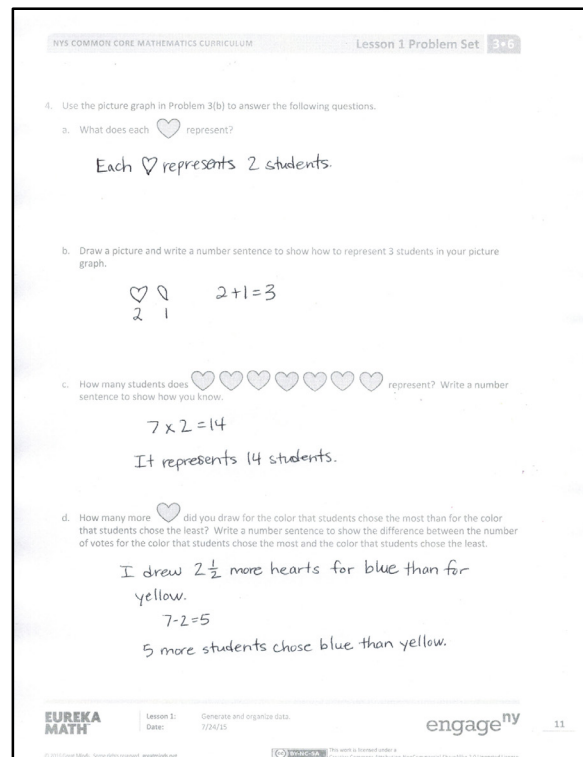 NYS COMMON CORE MATHEMATICS CURRICULUM
Lesson 1 Problem Set 3•6
4. Use the picture graph in Problem 3(b) to answer the following questions.
a. What does each ♡ represent?
Each ♡ represents 2 students.
b. Draw a picture and write a number sentence to show how to represent 3 students in your picture
graph.
2+1=3
2 1
c. How many students does ♡ ♡ ♡ ♡ ♡ ♡ ♡ represent? Write a number
sentence to show how you know.
7 x 2 = 14
It represents 14 students.
d. How many more ♡ did you draw for the color that students chose the most than for the color
that students chose the least? Write a number sentence to show the difference between the number
of votes for the color that students chose the most and the color that students chose the least.
I drew 2 1/2 more hearts for blue than for
yellow.
7-2=5
5 more students chose blue than yellow.
EUREKA
MATH
Lesson 1: Generate and organize data.
Date: 7/24/15
engage ny
11
This work is licensed under a